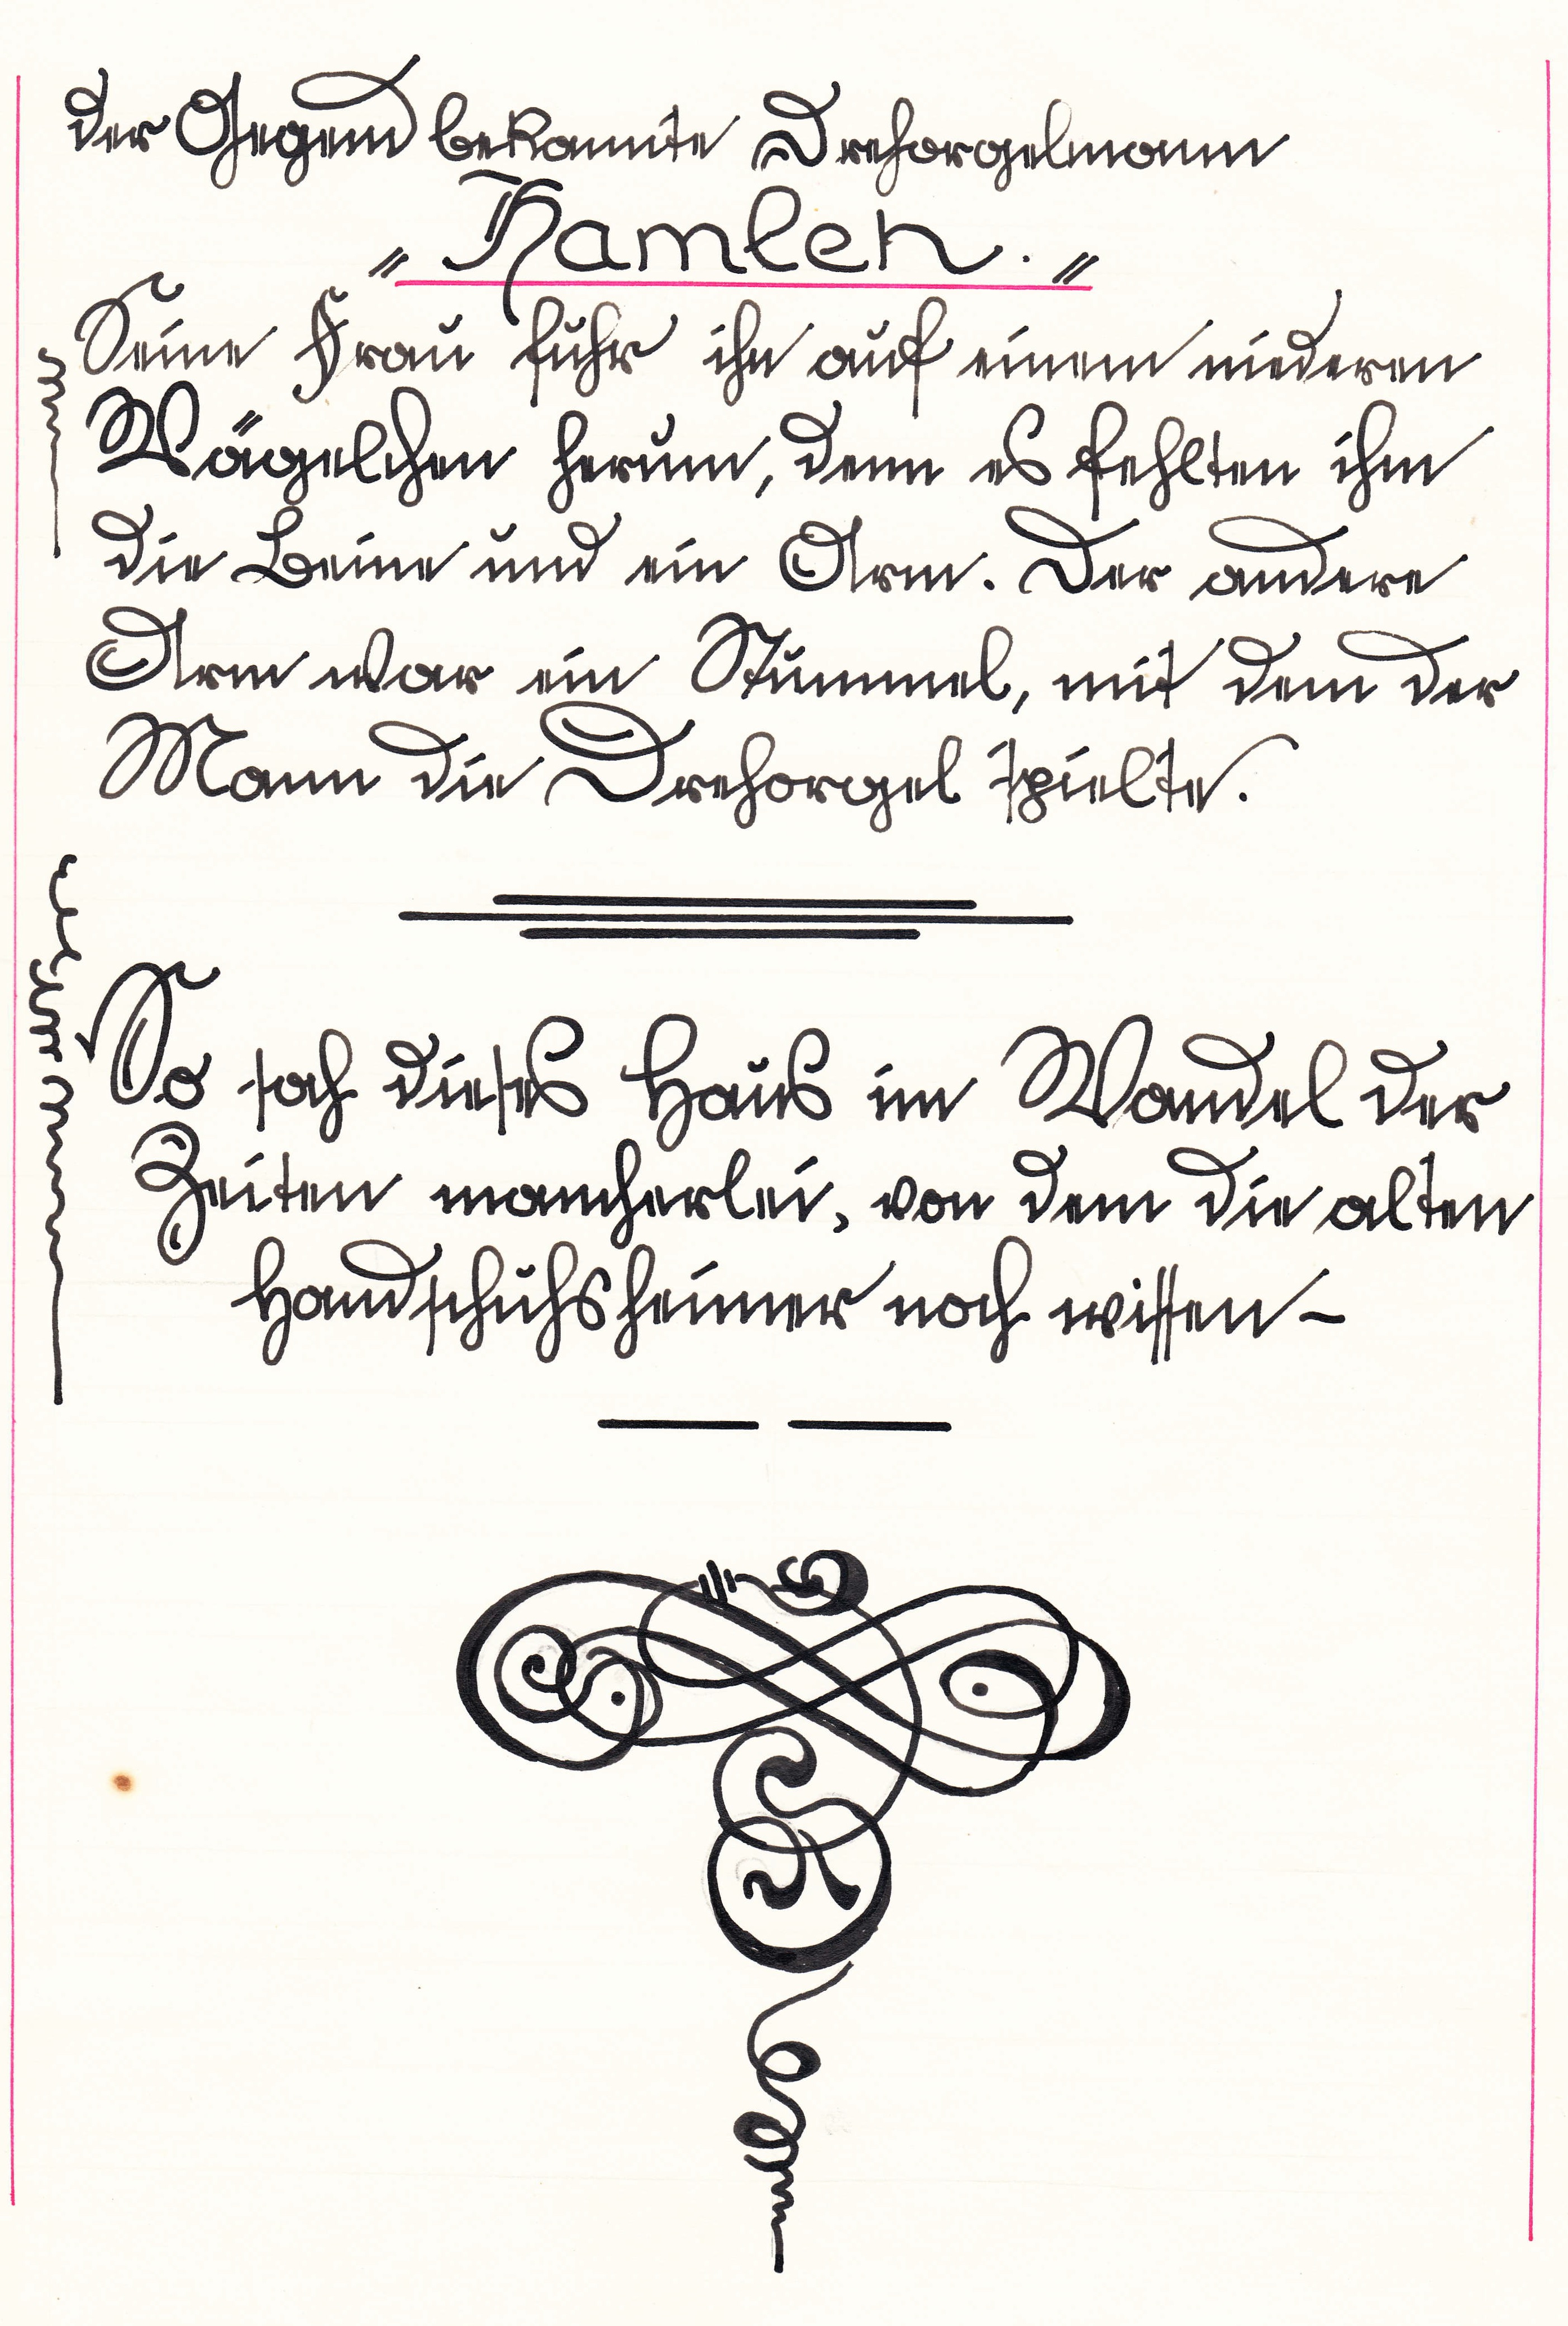 der Gegend bekannte Drehorgelmann
„Hamlen."
Seine Frau fuhr ihn auf einem niederen
Wägelchen herum, denn es fehlten ihm
die Beine und ein Arm. Der andere
Arm war ein Stummel, mit dem der
Mann die Drehorgel spielte.
So sah dieses Haus im Wandel der
Zeiten mancherlei, von dem die alten
Handschuhsheimer noch wissen –